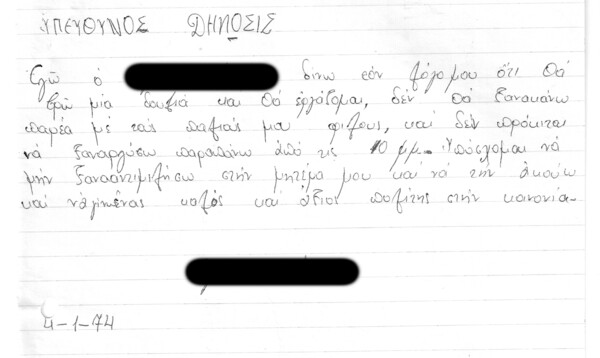 ὙΠΕΥΘΥΝΟΣ ΔΗΛΟΣΙΣ
Ἐγῶ ὁ δίνω τόν λόγο μου ὅτι θά
βρῶ μία δουλιά και θά ἐργάζομαι, δέν θά ξανακάνω
παρέα μέ τούς παλιούς μου φίλους, καί δέν πρόκιται
νά ξαναργήσω παραπάνω ἀπό τις 10 μμ. Ὑπόσχομαι νά
μήν ξανααντιμιλήσω στήν μητέρα μου καί νά τήν ἀκούω
καί νά γίνω ἕνας καλός καί ἄξιος πολίτης στήν κοινονία.
4-1-74